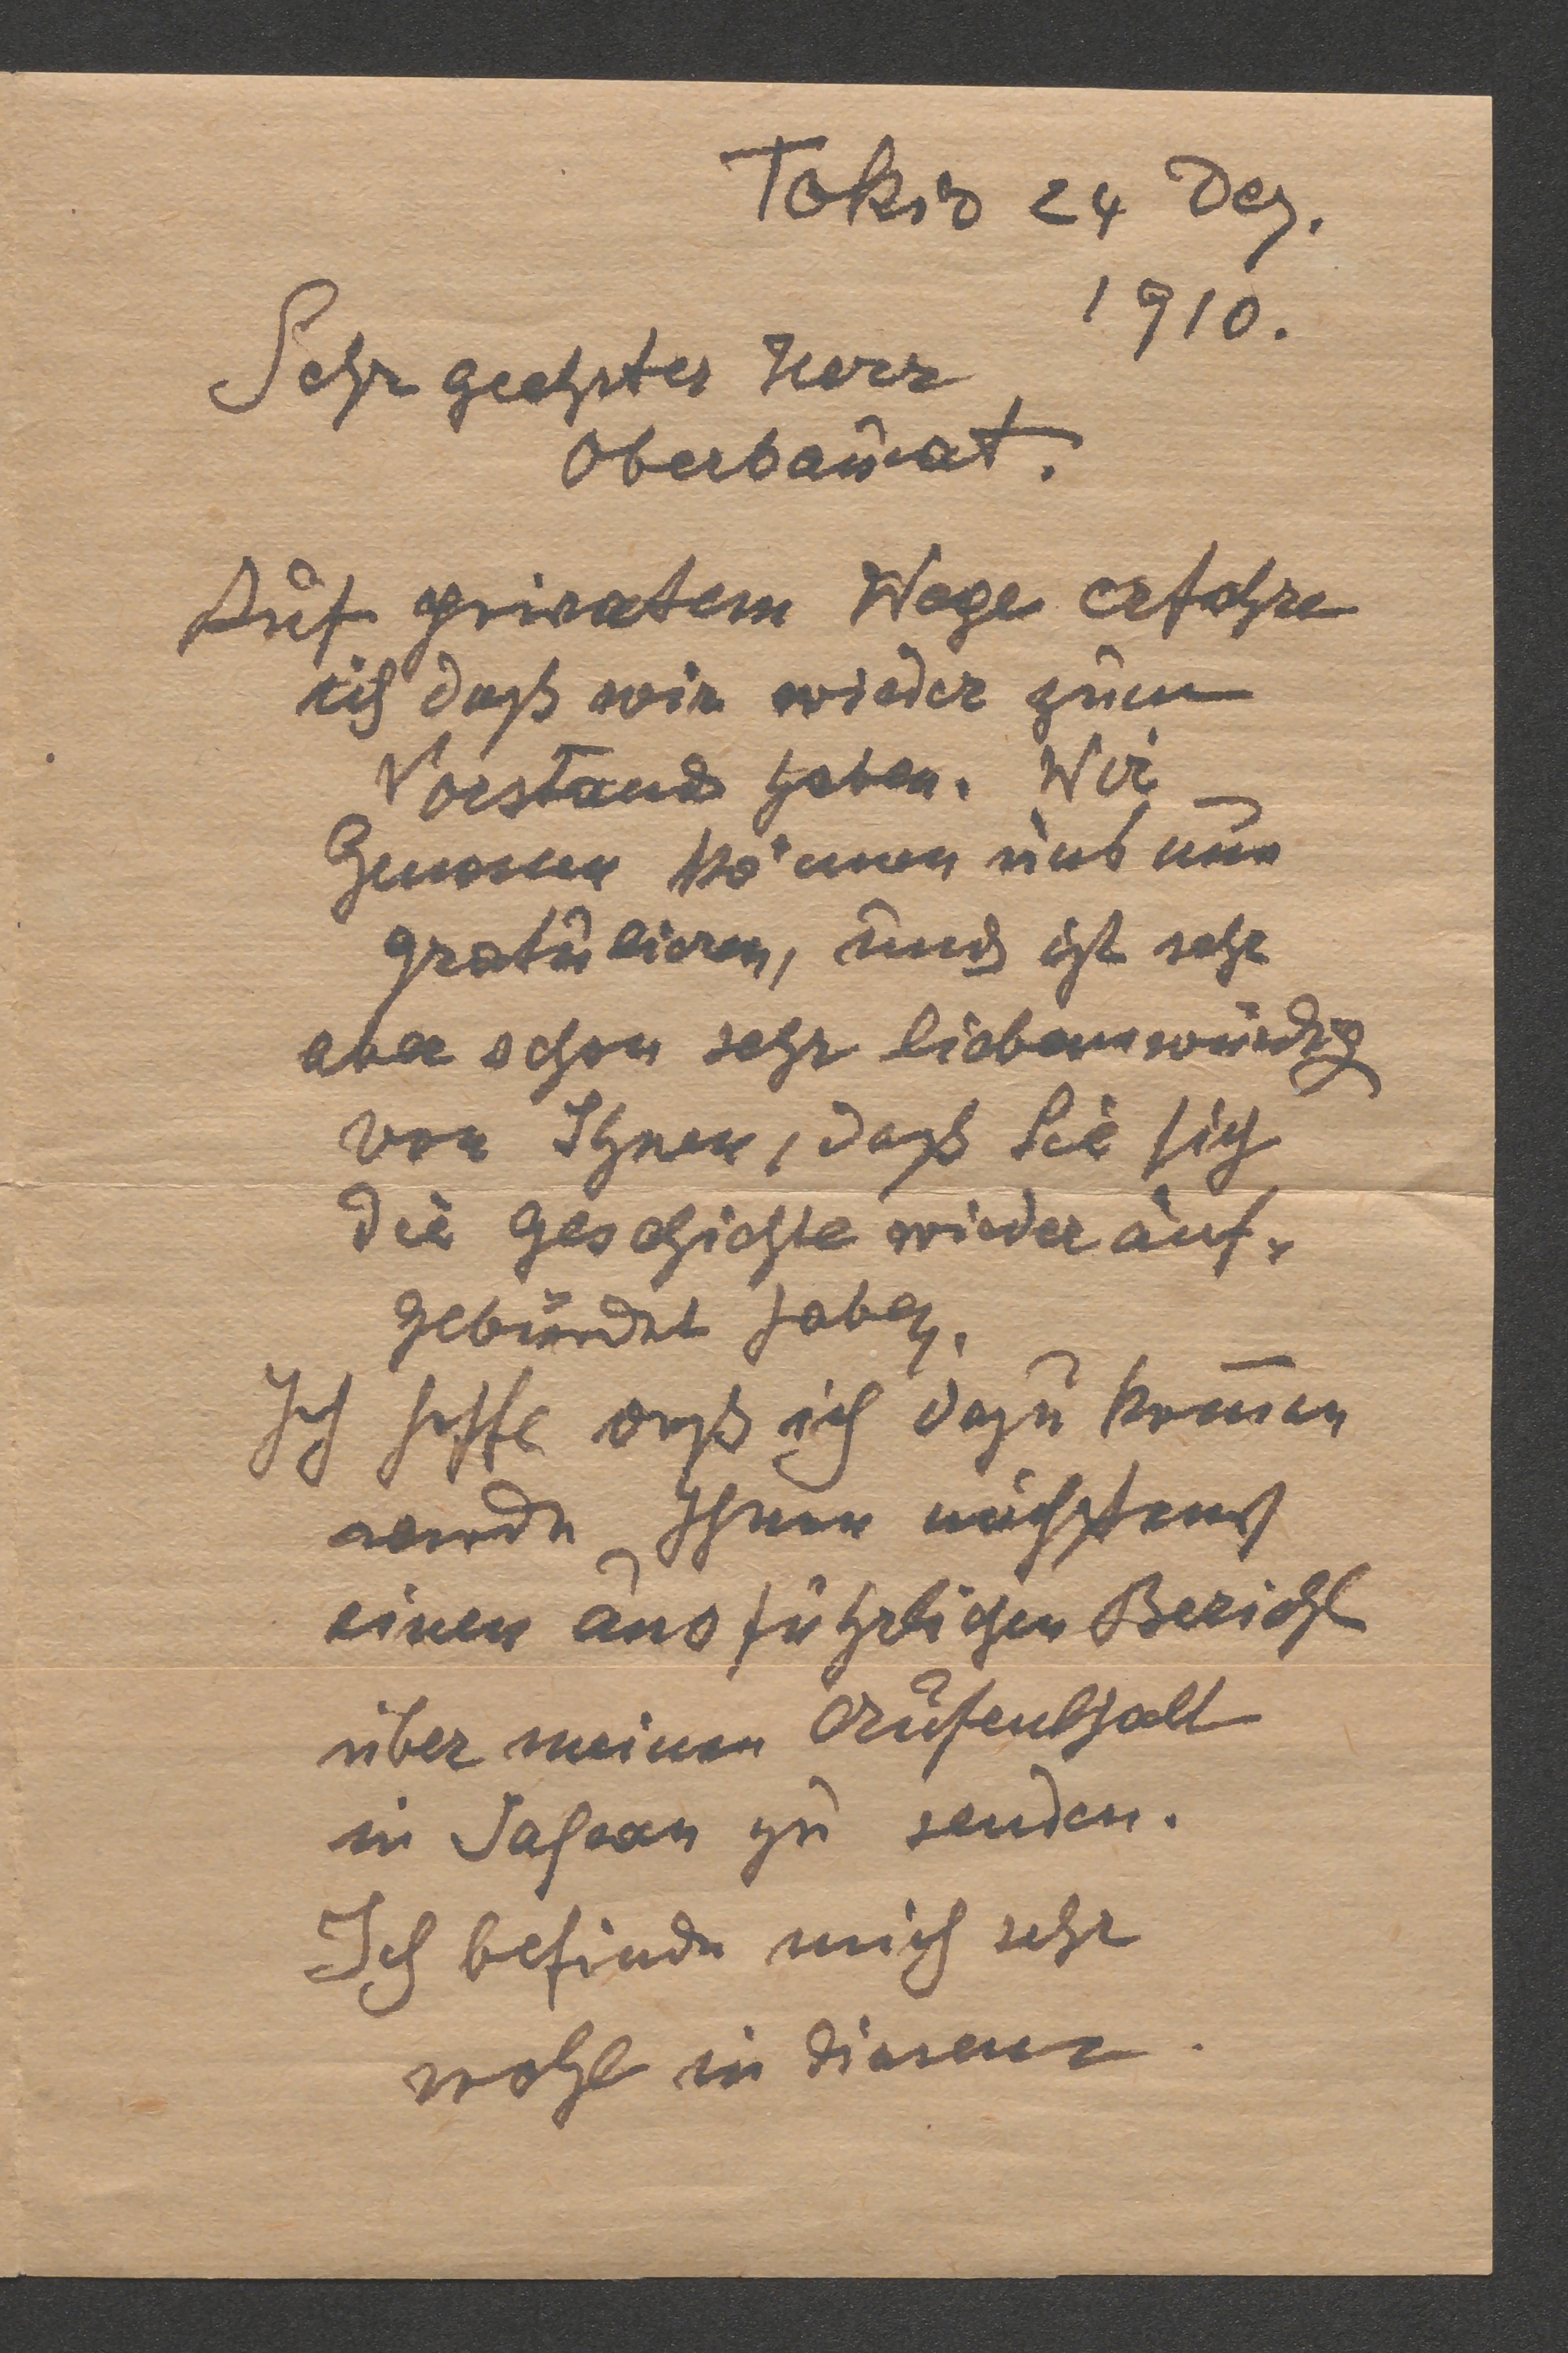 Tokio 24 Dez.
1910.
Sehr geehrter Herr
Oberbaurat.
Auf privatem Wege erfahre
ich daß wir wieder zum
Vorstand haben. Wir
können uns nur
gratulieren, und ist sehr
aber schon sehr liebenswürdig
von Ihnen, daß Sie sich
die Geschichte wieder auf-
gebürdet haben.
Ich hoffe daß ich dazu kommen
werde Ihnen nächstens
einen ausführlichen Bericht
über meinen Aufenthalt
in Japan zu senden.
Ich befinde mich sehr
wohl in diesem